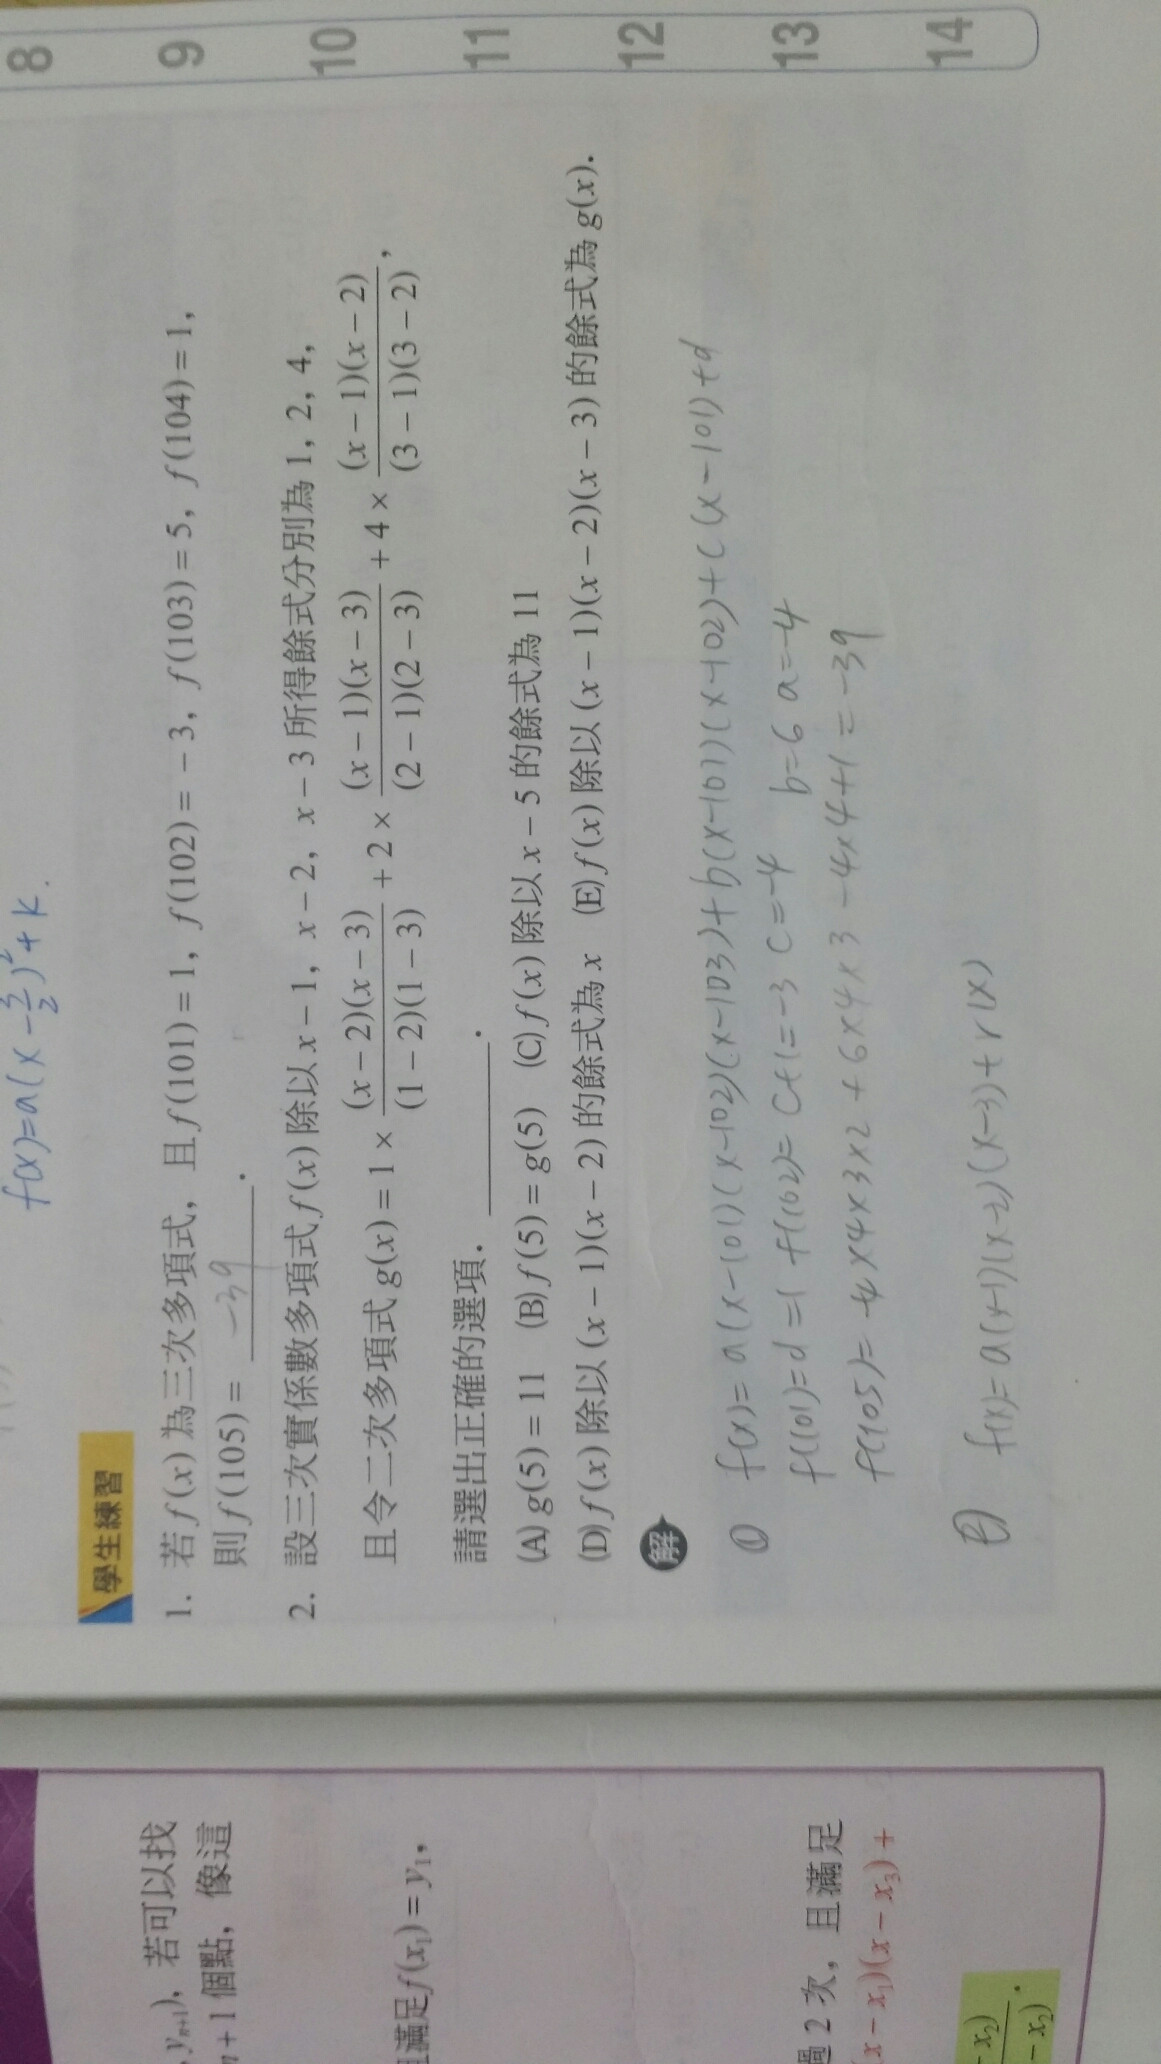 8
9
10
11
12
13
14
f(x)=a(x-3/2)²+k.
學生練習
1. 若 f(x) 為三次多項式，且 f(101)=1，f(102)=-3，f(103)=5，f(104)=1，
則 f(105)= -39 .
2. 設三次實係數多項式 f(x) 除以 x-1，x-2，x-3 所得餘式分別為 1，2，4，
且令二次多項式 g(x)=1×(x-2)(x-3)/(1-2)(1-3)+2×(x-1)(x-3)/(2-1)(2-3)+4×(x-1)(x-2)/(3-1)(3-2)，
請選出正確的選項. ______.
(A) g(5)=11 (B) f(5)=g(5) (C) f(x) 除以 x-5 的餘式為 11
(D) f(x) 除以 (x-1)(x-2) 的餘式為 x (E) f(x) 除以 (x-1)(x-2)(x-3) 的餘式為 g(x).
解
① f(x)=a(x-101)(x-102)(x-103)+b(x-101)(x-102)+c(x-101)+d
f(101)=d=1 f(102)=c+1=-3 c=-4 b=6 a=-4
f(105)=-4×4×3×2+6×4×3-4×4+1=-39
f(x)=a(x-1)(x-2)(x-3)+r(x)
yₙ₊₁)，若可以找
n+1 個點，像這
滿足 f(x₁)=y₁，
過 2 次，且滿足
(x-x₁)(x-x₃)+
-x₂)
-x₂).